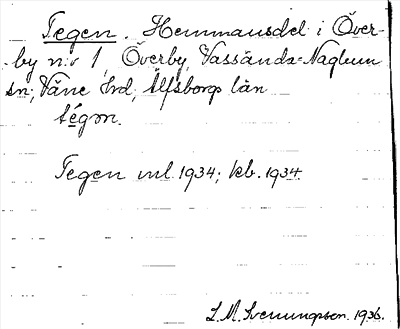 Tegen. Hemmansdel i Över-
by n:o 1, Överby, Vassända-Naglum
sn; Väne hrd, Älfsborgs län
tégɷn.
Tegen inl. 1934; kb. 1934
L. M. Svenungsson. 1936.